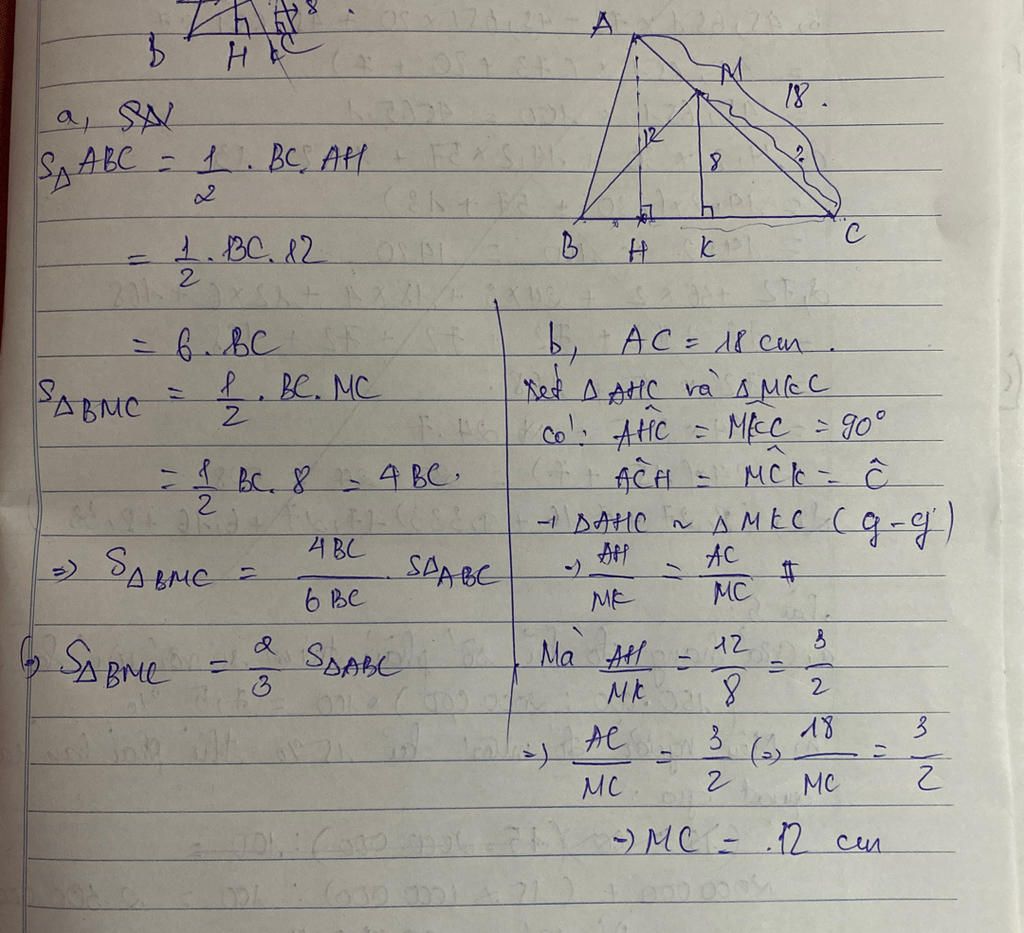 8
B H K C
A
M
18.
12
8
?
B H K C
a, SA
S△ABC = 1/2 . BC. AH
= 1/2 . BC. 12
= 6. BC
S△BMC = 1/2 . BC. MC
= 1/2 BC. 8 = 4BC.
=> S△BMC = 4BC/6BC S△ABC
S△BMC = 2/3 S△ABC
b, AC = 18 cm.
Xét △AHC và △MKC
có: AĤC = MK̂C = 90°
AĈH = MĈK = Ĉ
→ △AHC ~ △MKC (g-g)
→ AH/MK = AC/MC
Mà AH/MK = 12/8 = 3/2
=> AC/MC = 3/2 (=) 18/MC = 3/2
→ MC = 12 cm